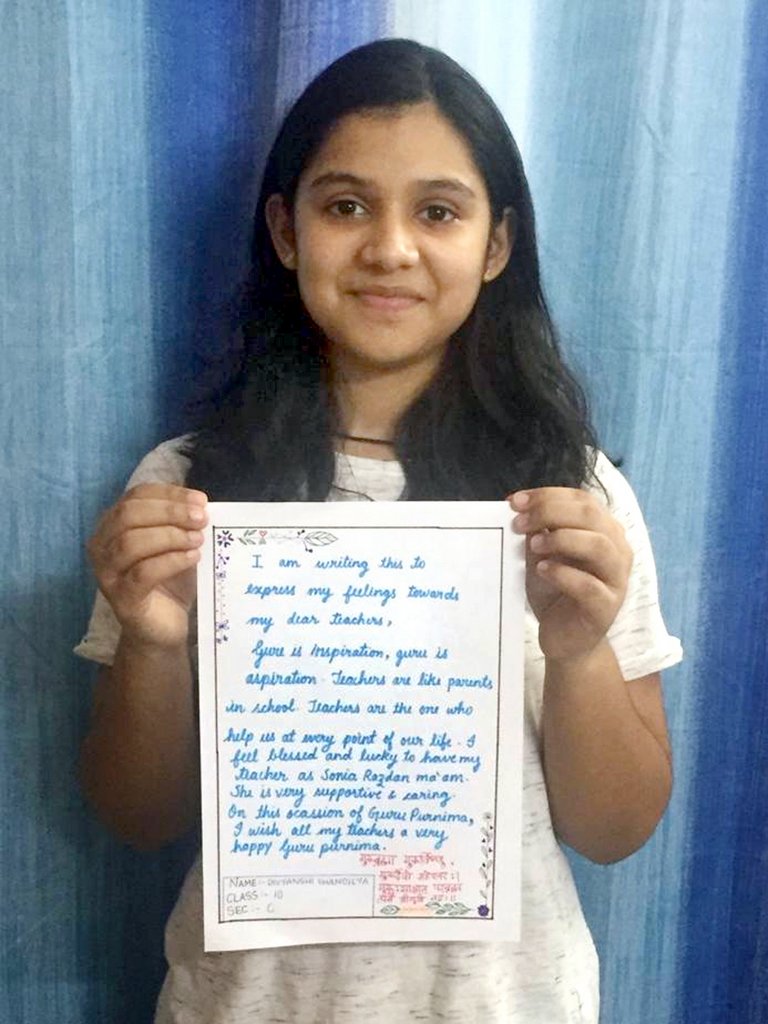 I am writing this to
express my feelings towards
my dear teachers,
Guru is inspiration, guru is
aspiration. Teachers are like parents
in school. Teachers are the one who
help us at every point of our life. I
feel blessed and lucky to have my
teacher as Sonia Razdan ma'am.
She is very supportive & caring.
On this ocassion of Guru Purnima,
I wish all my teachers a very
happy Guru purnima.
गुरुब्रह्मा गुरुर्विष्णु,
गुरुर्देवो महेश्वरः।
NAME:- DIVYANSHI
CLASS:- 10
SEC:- C